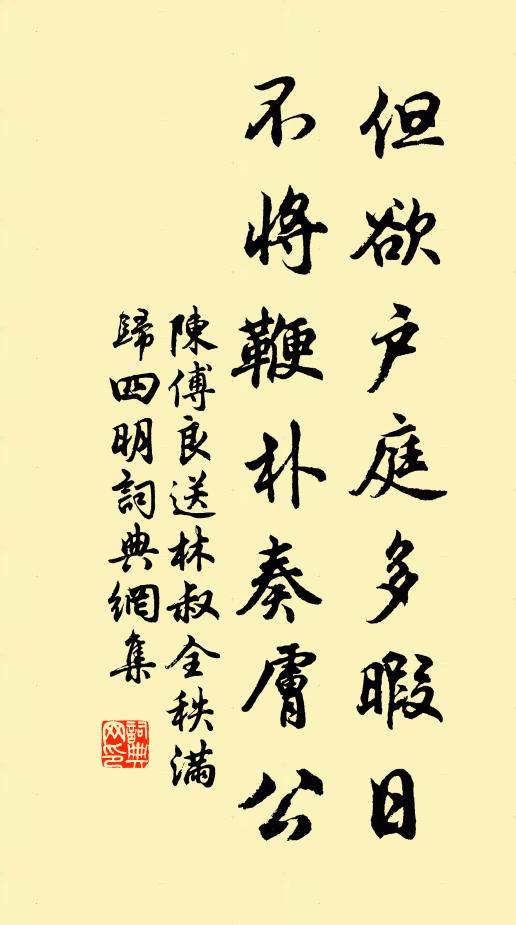 但欲户庭多暇日
不将鞭朴奏膚公
陳傅良送林叔全秩滿
歸四明詞典網集
詞典网印